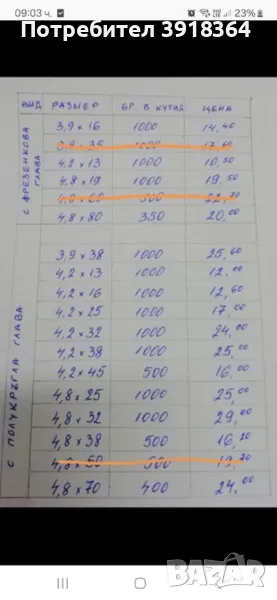 09:03 ч.
23%
Потребител 3918364
ВИД РАЗМЕР БР. В КУТИЯ ЦЕНА
С ФРЕЗЕНКОВА ГЛАВА
3,9 x 16 1000 14,40
3,9 x 35 1000 17,60
4,2 x 13 1000 10,50
4,8 x 19 1000 19,50
4,8 x 60 500 22,20
4,8 x 80 350 20,00
С ПОЛУКРЪГЛА ГЛАВА
3,9 x 38 1000 25,00
4,2 x 13 1000 12,00
4,2 x 16 1000 12,60
4,2 x 25 1000 17,00
4,2 x 32 1000 24,00
4,2 x 38 1000 25,00
4,2 x 45 500 16,00
4,8 x 25 1000 25,00
4,8 x 32 1000 29,00
4,8 x 38 500 16,20
4,8 x 50 500 19,70
4,8 x 70 400 24,00
bazar